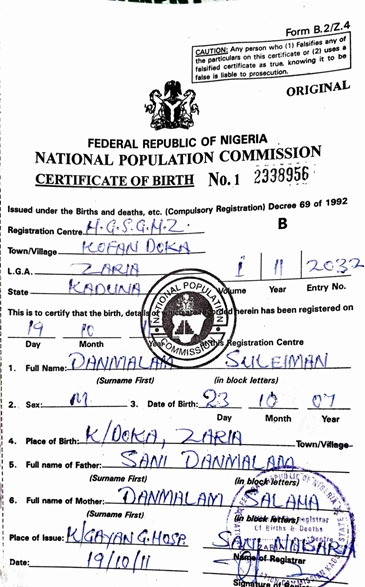 Form B.2/Z.4
CAUTION: Any person who (1) Falsifies any of
the particulars on this certificate or (2) uses a
falsified certificate as true, knowing it to be
false is liable to prosecution.
ORIGINAL
FEDERAL REPUBLIC OF NIGERIA
NATIONAL POPULATION COMMISSION
CERTIFICATE OF BIRTH No.1 2338956
Issued under the Births and deaths, etc. (Compulsory Registration) Decree 69 of 1992
Registration Centre H.G.S.G.H.Z. B
Town/Village KOFAN DOKA
L.G.A. ZARIA 1 11 2032
State KADUNA Volume Year Entry No.
This is to certify that the birth, details of which are recorded herein has been registered on
19 10 11
Day Month Year at this Registration Centre
NATIONAL POPULATION COMMISSION
1. Full Name: DANMALAM SULEIMAN
(Surname First) (in block letters)
2. Sex: M 3. Date of Birth: 23 10 07
Day Month Year
4. Place of Birth: K/DOKA, ZARIA Town/Village
5. Full name of Father: SANI DANMALAM
(Surname First) (in block letters)
6. Full name of Mother: DANMALAM SALAHA
(Surname First) (in block letters)
Place of Issue: K/GAYAN G.HOSP. SANI
Name of Registrar
Date: 19/10/11
Signature of